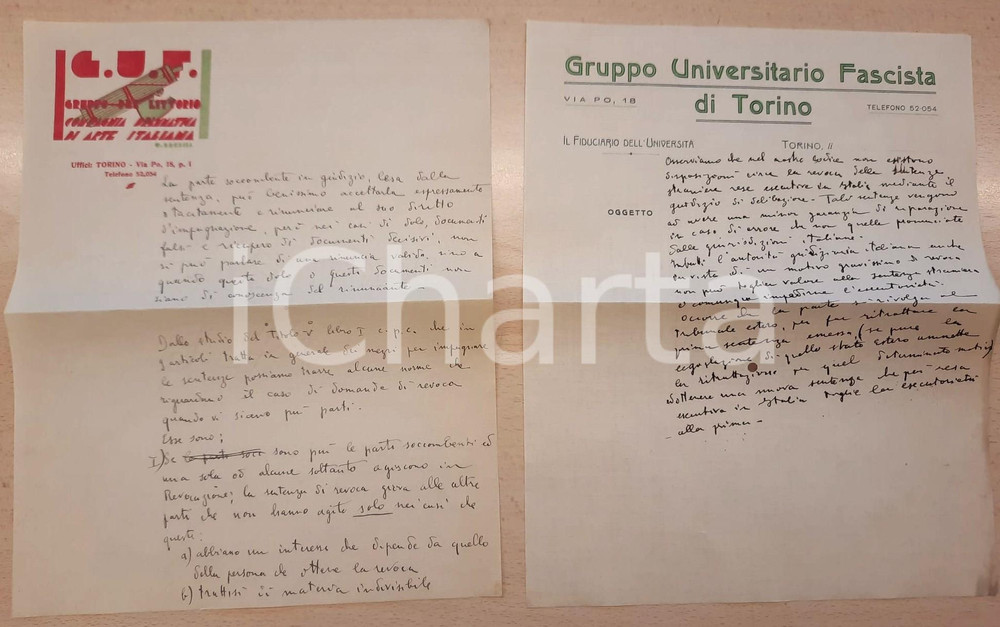 G.U.F.
GRUPPO DEL LITTORIO
COMPAGNIA DRAMMATICA
DI ARTE ITALIANA
Uffici: TORINO - Via Po, 18, p. I
Telefono 52,054
La parte soccombente in giudizio, lesa dalla
sentenza, può benissimo accettarla espressamente
o tacitamente e rinunziare al suo diritto
d'impugnazione, però nei casi di dolo, documenti
falsi e ricupero di documenti decisivi, non
si può parlare di una rinuncia valida sino a
quando questo dolo o questi documenti non
siano di conoscenza del rinunciante -
Dallo studio del titolo V libro I c.p.c. che in
articoli tratta in generale dei mezzi per impugnare
le sentenze possiamo trarre alcune norme che
riguardano il caso di domanda di revoca
quando vi siano più parti.
Esse sono:
I) Se le parti soci sono più le parti soccombenti ed
una sola od alcune soltanto agiscono in
Revocazione; la sentenza di revoca giova alle altre
parti che non hanno agito solo nei casi che
queste:
a) abbiano un interesse che dipende da quello
della persona che ottiene la revoca
b) trattisi di materia indivisibile
Gruppo Universitario Fascista
di Torino
VIA PO, 18
TELEFONO 52-054
IL FIDUCIARIO DELL'UNIVERSITÀ
TORINO, li
OGGETTO
Osserviamo che nel nostro codice non esistono
disposizioni circa la revoca della sentenza
straniera resa esecutiva in Italia mediante il
giudizio di delibazione. Tali sentenze vengono
ad avere una minor garanzia di riparazione
in caso di errore che non quelle pronunciate
dalle giurisdizioni italiane.
Infatti l'autorità giudiziaria italiana anche
in vista di un motivo gravissimo di revoca
non può toglier valore alla sentenza straniera
o comunque impedirne l'esecutorietà.
Occorre che la parte si rivolga al
tribunale estero, per far ritrattare la
prima sentenza emessa (se pure la
legislazione di quello stato estero ammette
la ritrattazione per quel determinato motivo)
ed ottenere una nuova sentenza che poi resa
esecutiva in Italia toglie la esecutorietà
alla prima -
iCharta